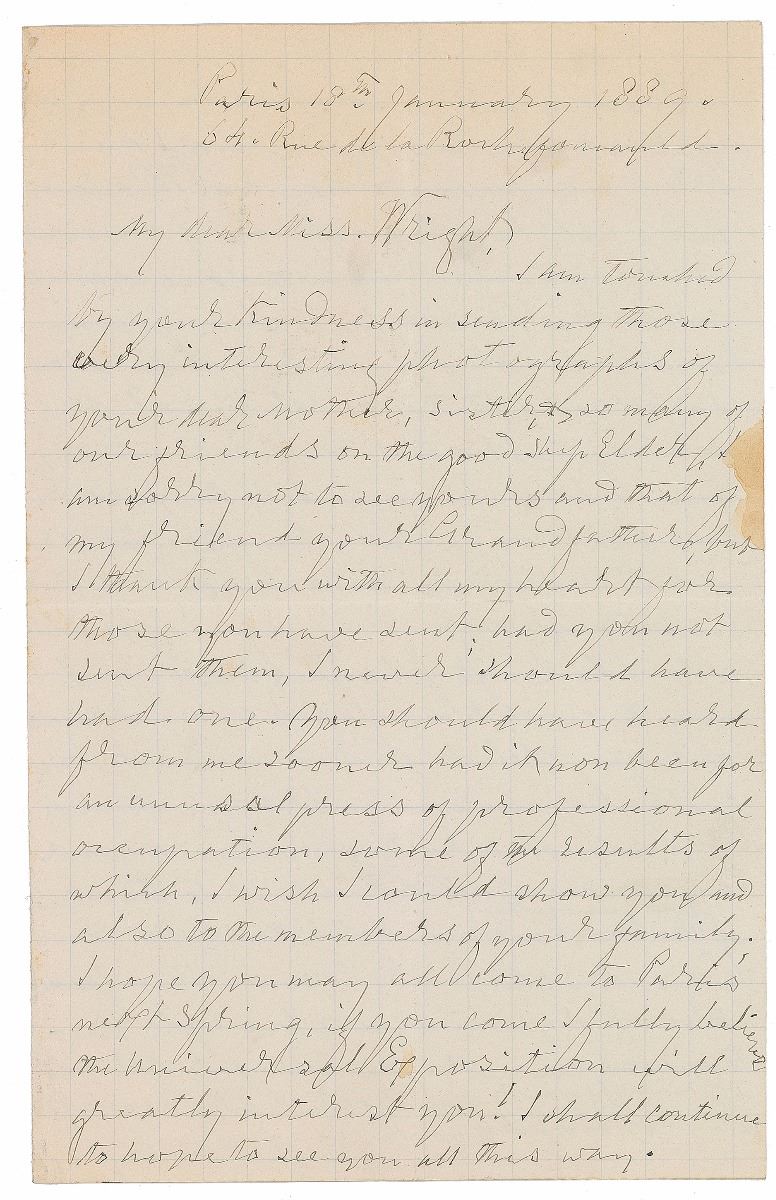 Paris 18th January 1889.
64. Rue de la Rochefoucauld.
My dear Miss. Wright,
I am touched
by your kindness in sending those
very interesting photographs of
your dear Mother, sister, & so many of
our friends on the good ship Elder, I
am sorry not to see yours and that of
my friend your Grandfather, but
I thank you with all my heart for
those you have sent; had you not
sent them, I never should have
had one. You should have heard
from me sooner had it non been for
an unusal press of professional
occupation, some of the results of
which, I wish I could show you and
also to the members of your family.
I hope you may all come to Paris
next Spring, if you come I fully believe
the Universal Exposition will
greatly interest you! I shall continue
to hope to see you all this way.